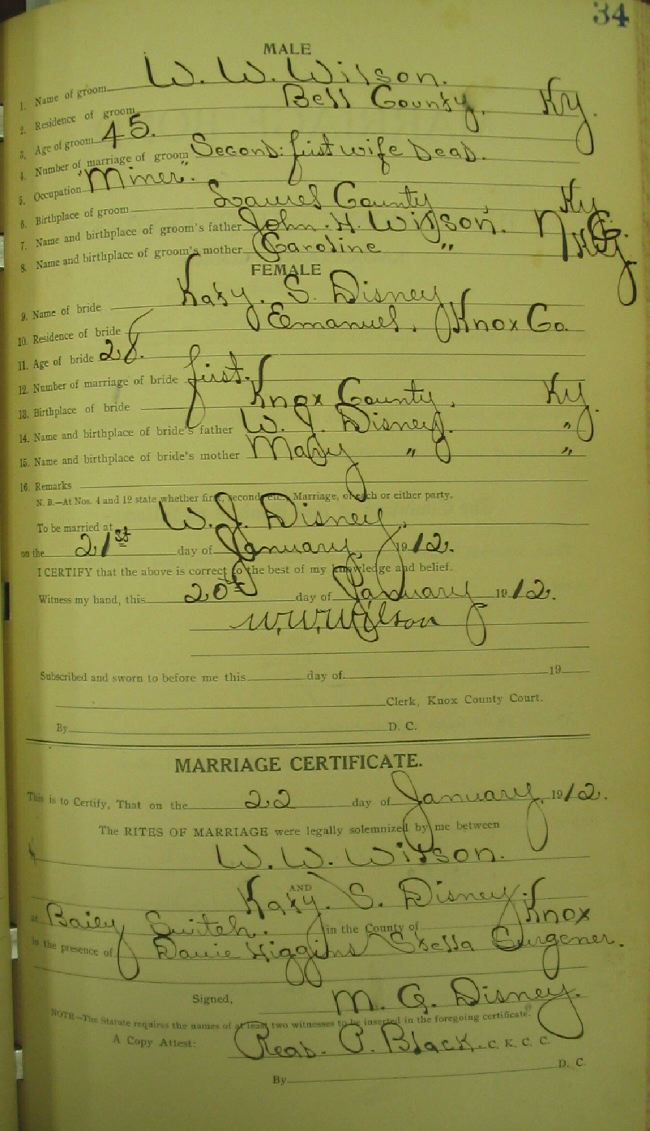 34
MALE
1. Name of groom W. W. Wilson.
2. Residence of groom Bell County, Ky.
3. Age of groom 45.
4. Number of marriage of groom Second: first wife Dead.
5. Occupation "Miner."
6. Birthplace of groom Laurel County, Ky
7. Name and birthplace of groom's father John. H. Wilson. N.C.
8. Name and birthplace of groom's mother Caroline " Ky.
FEMALE
9. Name of bride Katy. S. Disney
10. Residence of bride Emanuel, Knox Co.
11. Age of bride 28.
12. Number of marriage of bride first.
13. Birthplace of bride Knox County, Ky.
14. Name and birthplace of bride's father W. J. Disney. "
15. Name and birthplace of bride's mother Mary " "
16. Remarks
N. B.—At Nos. 4 and 12 state whether first, second, etc., Marriage, of each or either party.
To be married at W. J. Disney,
on the 21st day of January, 1912.
I CERTIFY that the above is correct to the best of my knowledge and belief.
Witness my hand, this 20th day of January 1912.
W. W. Wilson
Subscribed and sworn to before me this day of 19
Clerk, Knox County Court.
By D. C.
MARRIAGE CERTIFICATE.
This is to Certify, That on the 22 day of January, 1912.
The RITES OF MARRIAGE were legally solemnized by me between
W. W. Wilson.
AND
Katy. S. Disney.
at Baiey Switch. in the County of Knox
in the presence of Davie Higgins Stella Surgener.
Signed, M. G. Disney.
NOTE—The Statute requires the names of at least two witnesses to be inserted in the foregoing certificate.
A Copy Attest: Read. P. Black. C. K. C. C.
By D. C.